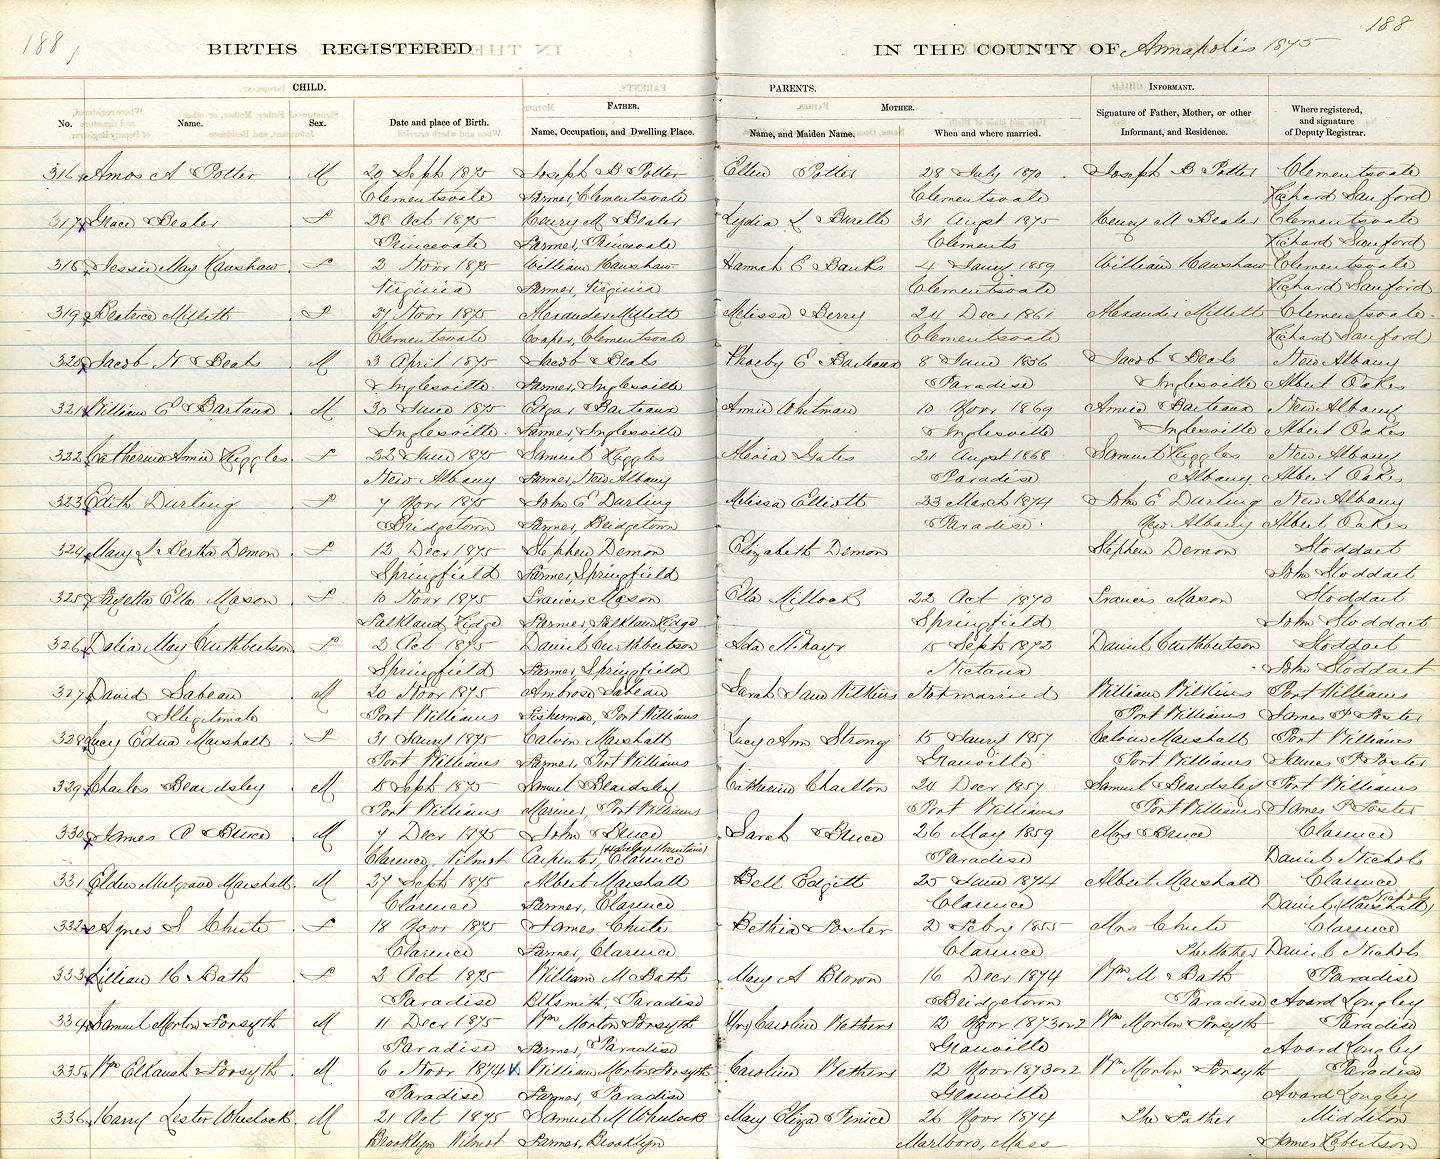 188
188
BIRTHS REGISTERED IN THE COUNTY OF Annapolis 1875
CHILD. PARENTS. INFORMANT.
FATHER. MOTHER.
No. Name. Sex. Date and place of Birth. Name, Occupation, and Dwelling Place. Name, and Maiden Name. When and where married. Signature of Father, Mother, or other Informant, and Residence. Where registered, and signature of Deputy Registrar.
316 Amos A Potter M 20 Sept 1875 Joseph B Potter Ellen Potter 28 July 1870 Joseph B Potter Clementsvale
Clementsvale Farmer, Clementsvale Clementsvale Richard Sanford
317 Grace Bealer F 28 Oct 1875 Henry M Bealer Lydia 31 Augst 1875 Henry M Bealer Clementsvale
Princevale Farmer, Princevale Clements Richard Sanford
318 Jessie May Hanshaw F 2 Novr 1875 William Hanshaw Hannah E Banks 4 Jany 1859 William Hanshaw Clementsvale
Virginia Farmer, Virginia Clementsvale Richard Sanford
319 Beatrice Millett F 27 Novr 1875 Alexander Millett Melissa Berry 24 Decr 1861 Alexander Millett Clementsvale
Clementsvale Cooper, Clementsvale Clementsvale Richard Sanford
320 Jacob N Beals M 3 April 1875 Jacob Beals Phoeby E Barteaux 8 June 1856 Jacob Beals New Albany
Inglesville Farmer, Inglesville Paradise Inglesville Albert Oakes
321 William E Bartaux M 30 June 1875 Edgar Barteaux Annie Whitman 10 Novr 1869 Annie Barteaux New Albany
Inglesville Farmer, Inglesville Inglesville Inglesville Albert Oakes
322 Catherine Annie Ruggles F 22 June 1875 Samuel Ruggles Alevia Gates 21 Augst 1868 Samuel Ruggles New Albany
New Albany Farmer, New Albany Paradise Albany Albert Oakes
323 Edith Durling F 7 Novr 1875 John E Durling Melissa Elliott 23 March 1874 John E Durling New Albany
Bridgetown Farmer, Bridgetown Paradise New Albany Albert Oakes
324 Mary J Bertha Demon F 12 Decr 1875 Stephen Demon Elizabeth Demon Stephen Demon Stoddart
Springfield Farmer, Springfield John Stoddart
325 Ella Mason F 10 Novr 1875 Francis Mason Ella Millock 22 Oct 1870 Francis Mason Stoddart
Falkland Ridge Farmer, Falkland Ridge Springfield John Stoddart
326 Delia May Cuthbertson F 2 Oct 1875 Daniel Cuthbertson Ada McNayr 15 Sept 1873 Daniel Cuthbertson Stoddart
Springfield Farmer, Springfield Nictaux John Stoddart
327 David Sabean M 20 Novr 1875 Ambrose Sabean Sarah Jane Wilkins Not married William Wilkins Port Williams
Illegitimate Port Williams Fisherman, Port Williams Port Williams James P Foster
328 Lucy Edna Marshall F 31 Jany 1875 Calvin Marshall Lucy Ann Strong 15 Jany 1857 Calvin Marshall Port Williams
Port Williams Farmer, Port Williams Granville Port Williams James P Foster
329 Charles Beardsley M 15 Sept 1875 Samuel Beardsley Catherine Charlton 24 Decr 1857 Samuel Beardsley Port Williams
Port Williams Mariner, Port Williams Port Williams Port Williams James P Foster
330 James C Bruce M 4 Decr 1875 John Bruce Sarah Bruce 26 May 1859 Mrs Bruce Clarence
Clarence, Wilmot Carpenter, Clarence Paradise Daniel Nichols
331 Elden Musgrave Marshall M 27 Sept 1875 Albert Marshall Bell Edgitt 25 June 1874 Albert Marshall Clarence
Clarence Farmer, Clarence Clarence Daniel (Marshall) Nichols
332 Agnes S Chute F 18 Novr 1875 James Chute Bethia Foster 2 Febry 1855 Mrs Chute Clarence
Clarence Farmer, Clarence Clarence The Mother Daniel Nichols
333 Lillian H Bath F 3 Oct 1875 William M Bath Mary A Brown 16 Decr 1874 Wm M Bath Paradise
Paradise Blksmith, Paradise Bridgetown Paradise Avard Longley
334 Samuel Morton Forsyth M 11 Decr 1875 Wm Morton Forsyth (Mrs) Caroline Wethers 12 Novr 1873 or 2 Wm Morton Forsyth Paradise
Paradise Farmer, Paradise Granville Avard Longley
335 Wm Elkanah Forsyth M 6 Novr 1874 William Morton Forsyth Caroline Wethers 12 Novr 1873 or 2 Wm Morton Forsyth Paradise
Paradise Farmer, Paradise Granville Avard Longley
336 Harry Lester Wheelock M 21 Oct 1875 Samuel M Wheelock Mary Eliza Fenice 26 Novr 1874 The Father Middleton
Brooklyn Wilmot Farmer, Brooklyn Marlboro, Mass James Robertson